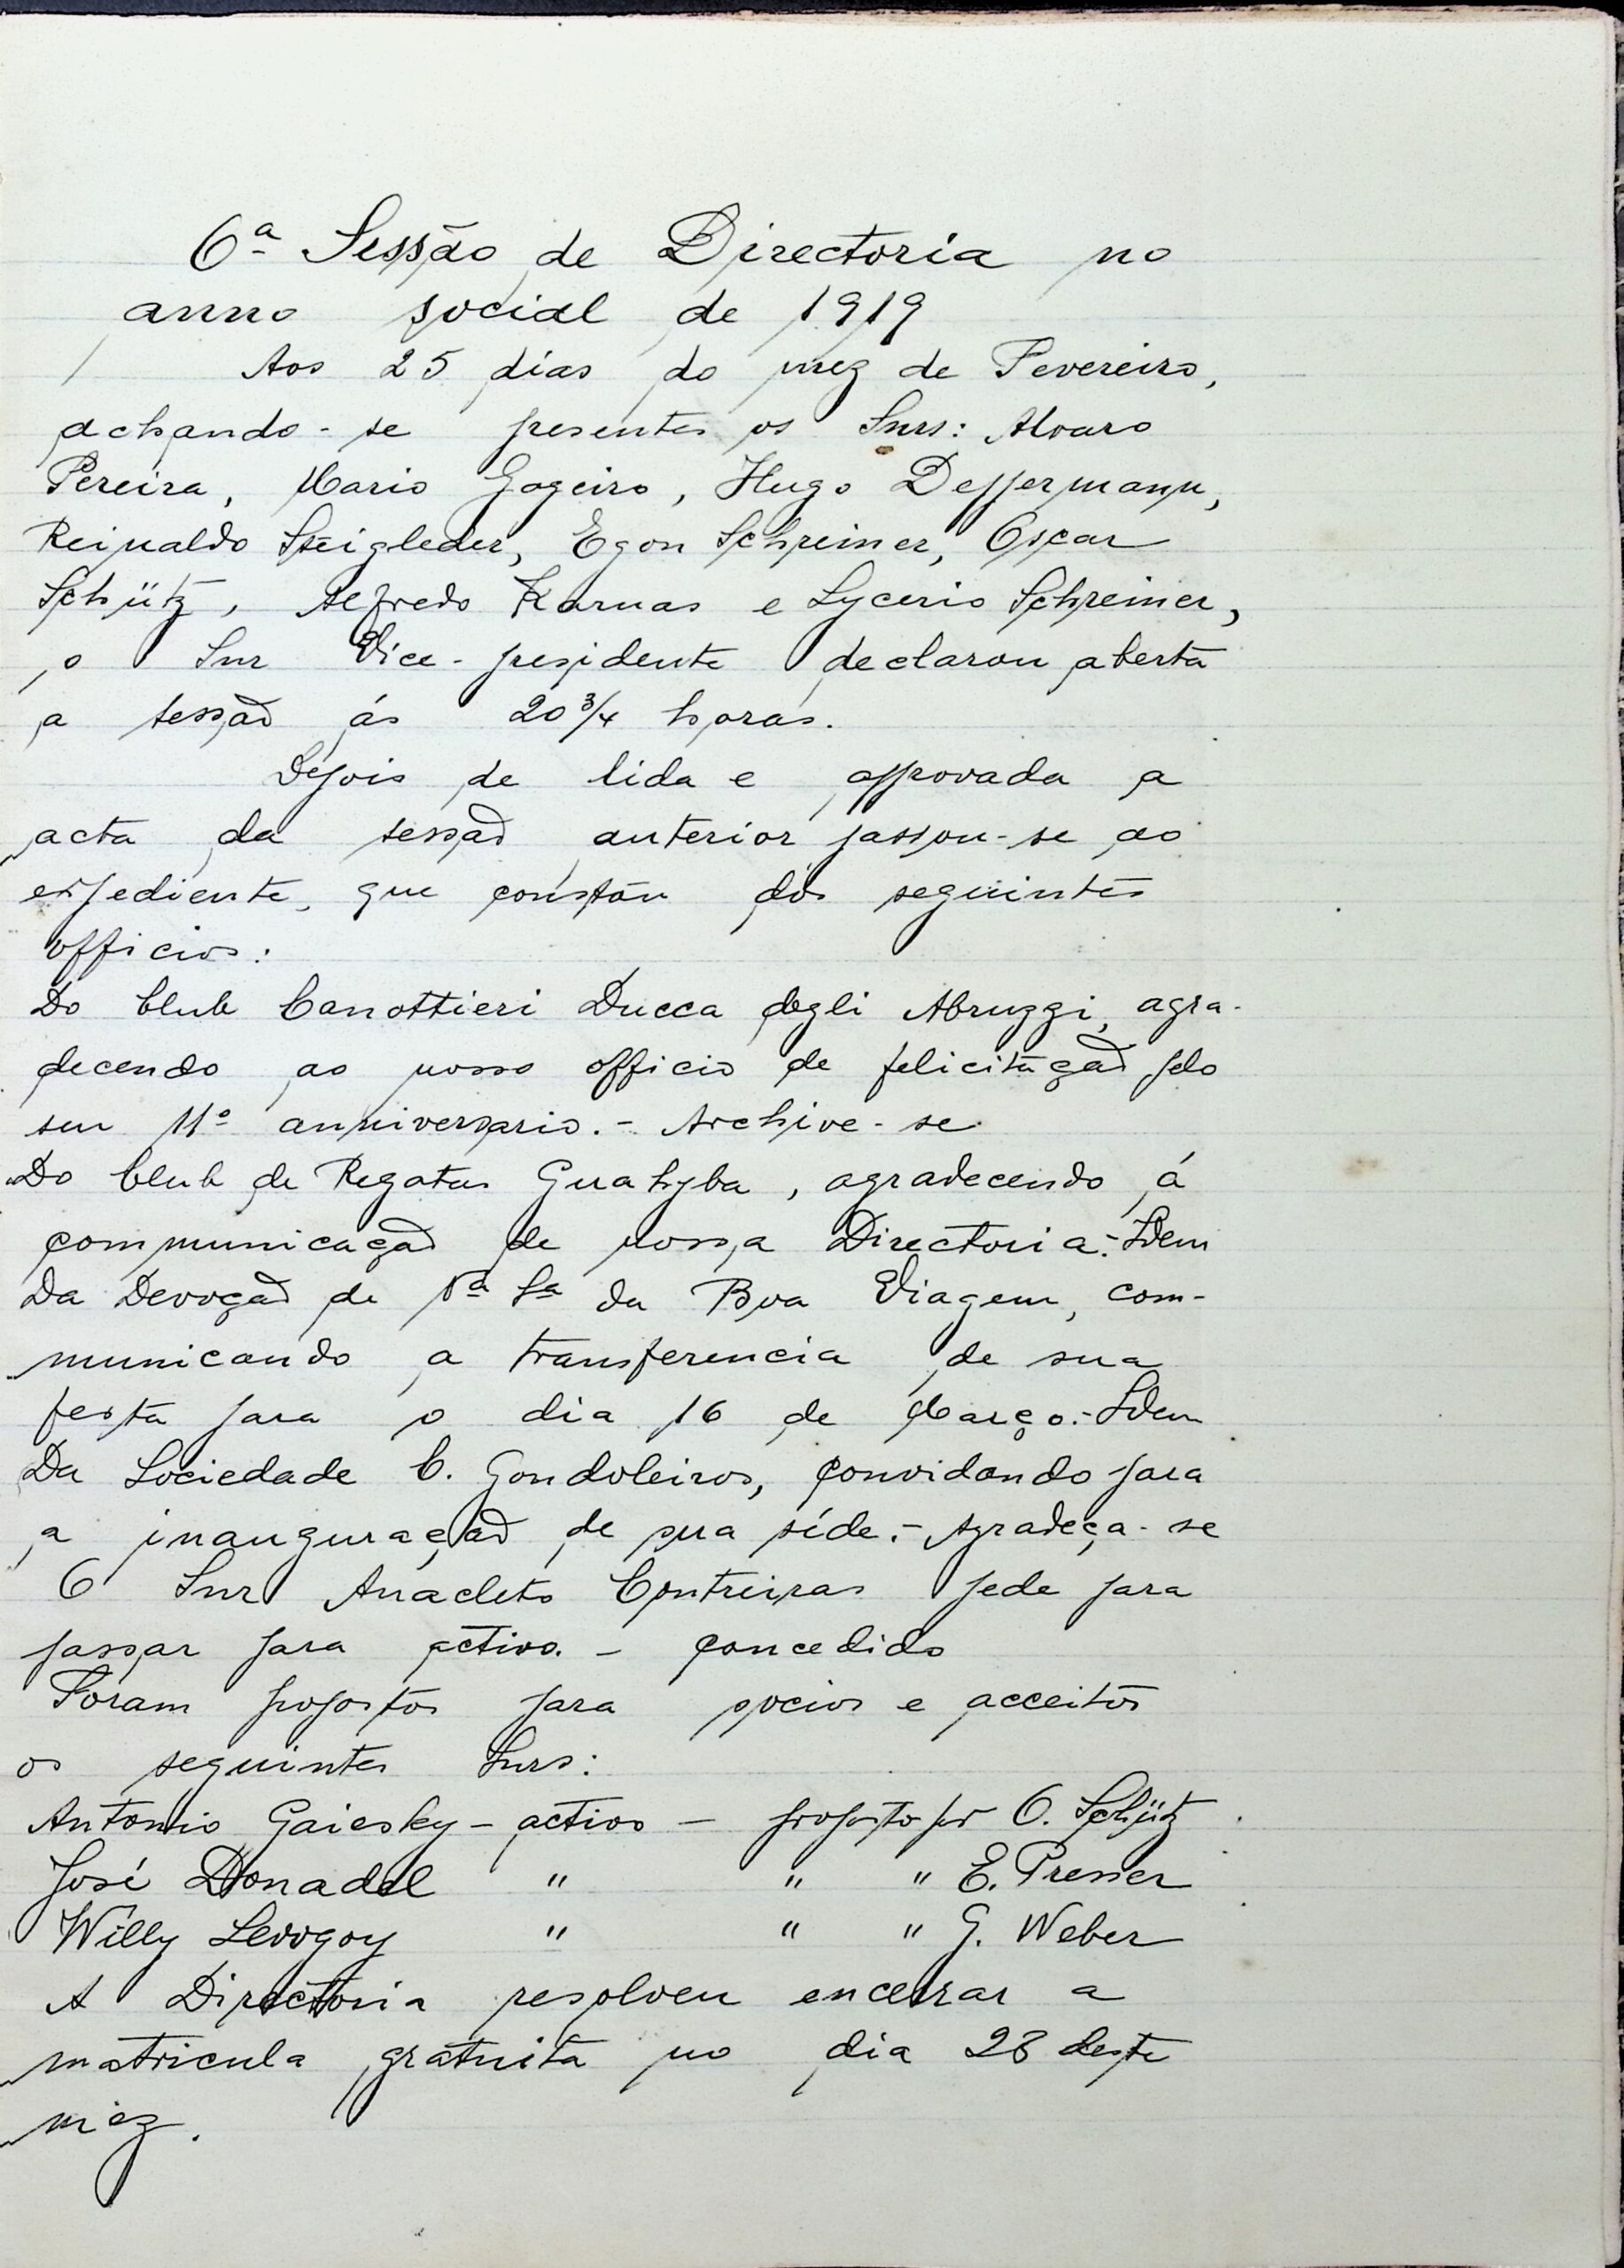 6ª Sessão de Directoria no
anno social de 1919
Aos 25 dias do mez de Fevereiro,
achando-se presentes os Snrs: Alvaro
Pereira, Mario Gogeiro, Hugo Deppermann,
Reinaldo Steigleder, Egon Schreiner, Oscar
Schütz, Alfredo Karnas e Lycerio Schreiner,
o Snr Vice-presidente declarou aberta
a sessão ás 20 3/4 horas.
Depois de lida e approvada a
acta da sessão anterior passou-se ao
expediente, que constou dos seguintes
officios:
Do Club Canottieri Ducca degli Abruzzi, agra-
decendo ao nosso officio de felicitação pelo
seu 11º anniversario.- Archive-se
Do Club de Regatas Guahyba, agradecendo á
communicação de nossa Directoria.- Idem
Da Devoção de Nª Sª da Boa Viagem, com-
municando a transferencia de sua
festa para o dia 16 de Março.- Idem
Da Sociedade C. Gondoleiros, convidando para
a inauguração de sua séde.- Agradeça-se
O Snr Anacleto Contreiras pede para
passar para activo. - Concedido
Foram propostos para socios e acceitos
os seguintes Snrs:
Antonio Gaiesky - activo - proposto por O. Schütz
José Donadel " " " E. Presser
Willy " " " G. Weber
A Directoria resolveu encerrar a
matricula gratuita no dia 28 deste
mez.